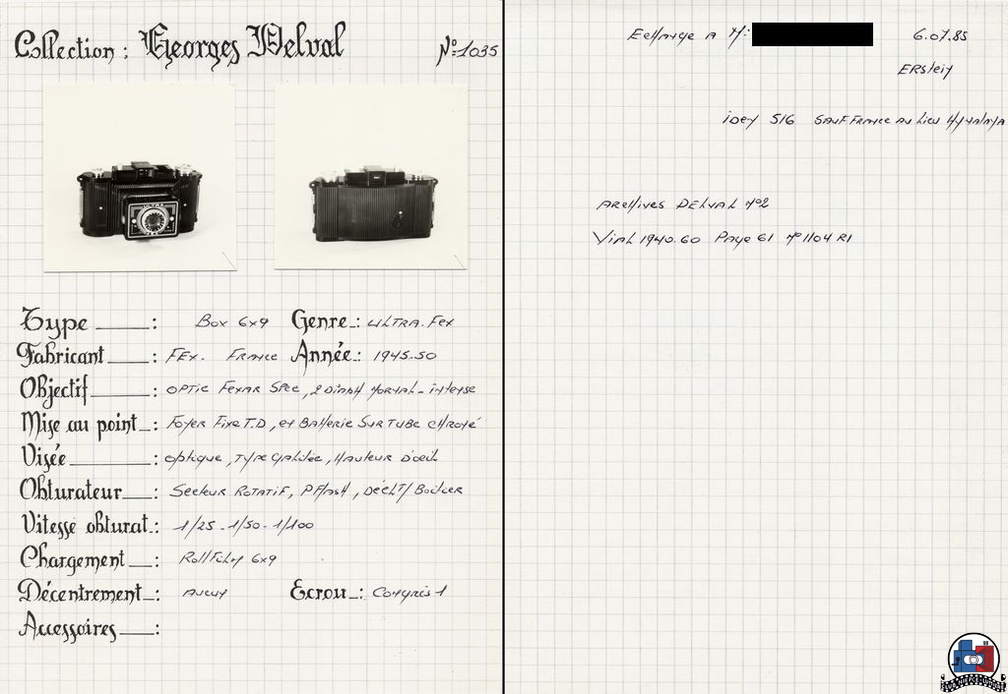 Collection : Georges Delval N°:1035
ULTRA
Type : Box 6x9 Genre : ULTRA.Fex
Fabricant : FEX. France Année : 1945.50
Objectif : OPTIC FEXAR Spec, 2 Diaph Normal - intense
Mise au point : Foyer Fixe T.D, et Batterie Sur TUBE chromé
Visée : optique, Type Galilée, Hauteur D'oeil
Obturateur : Secteur Rotatif, P.Flash, Déclt/Boitier
Vitesse obturat : 1/25 - 1/50 - 1/100
Chargement : Rollfilm 6x9
Décentrement : Aucun Ecrou : Congrès 1
Accessoires :
Echange A M: 6.07.85
Erstein
idem 516 SAUF France au Lieu
Archives DELVAL N°2
Vial 1940.60 Page 61 N°1104 R1